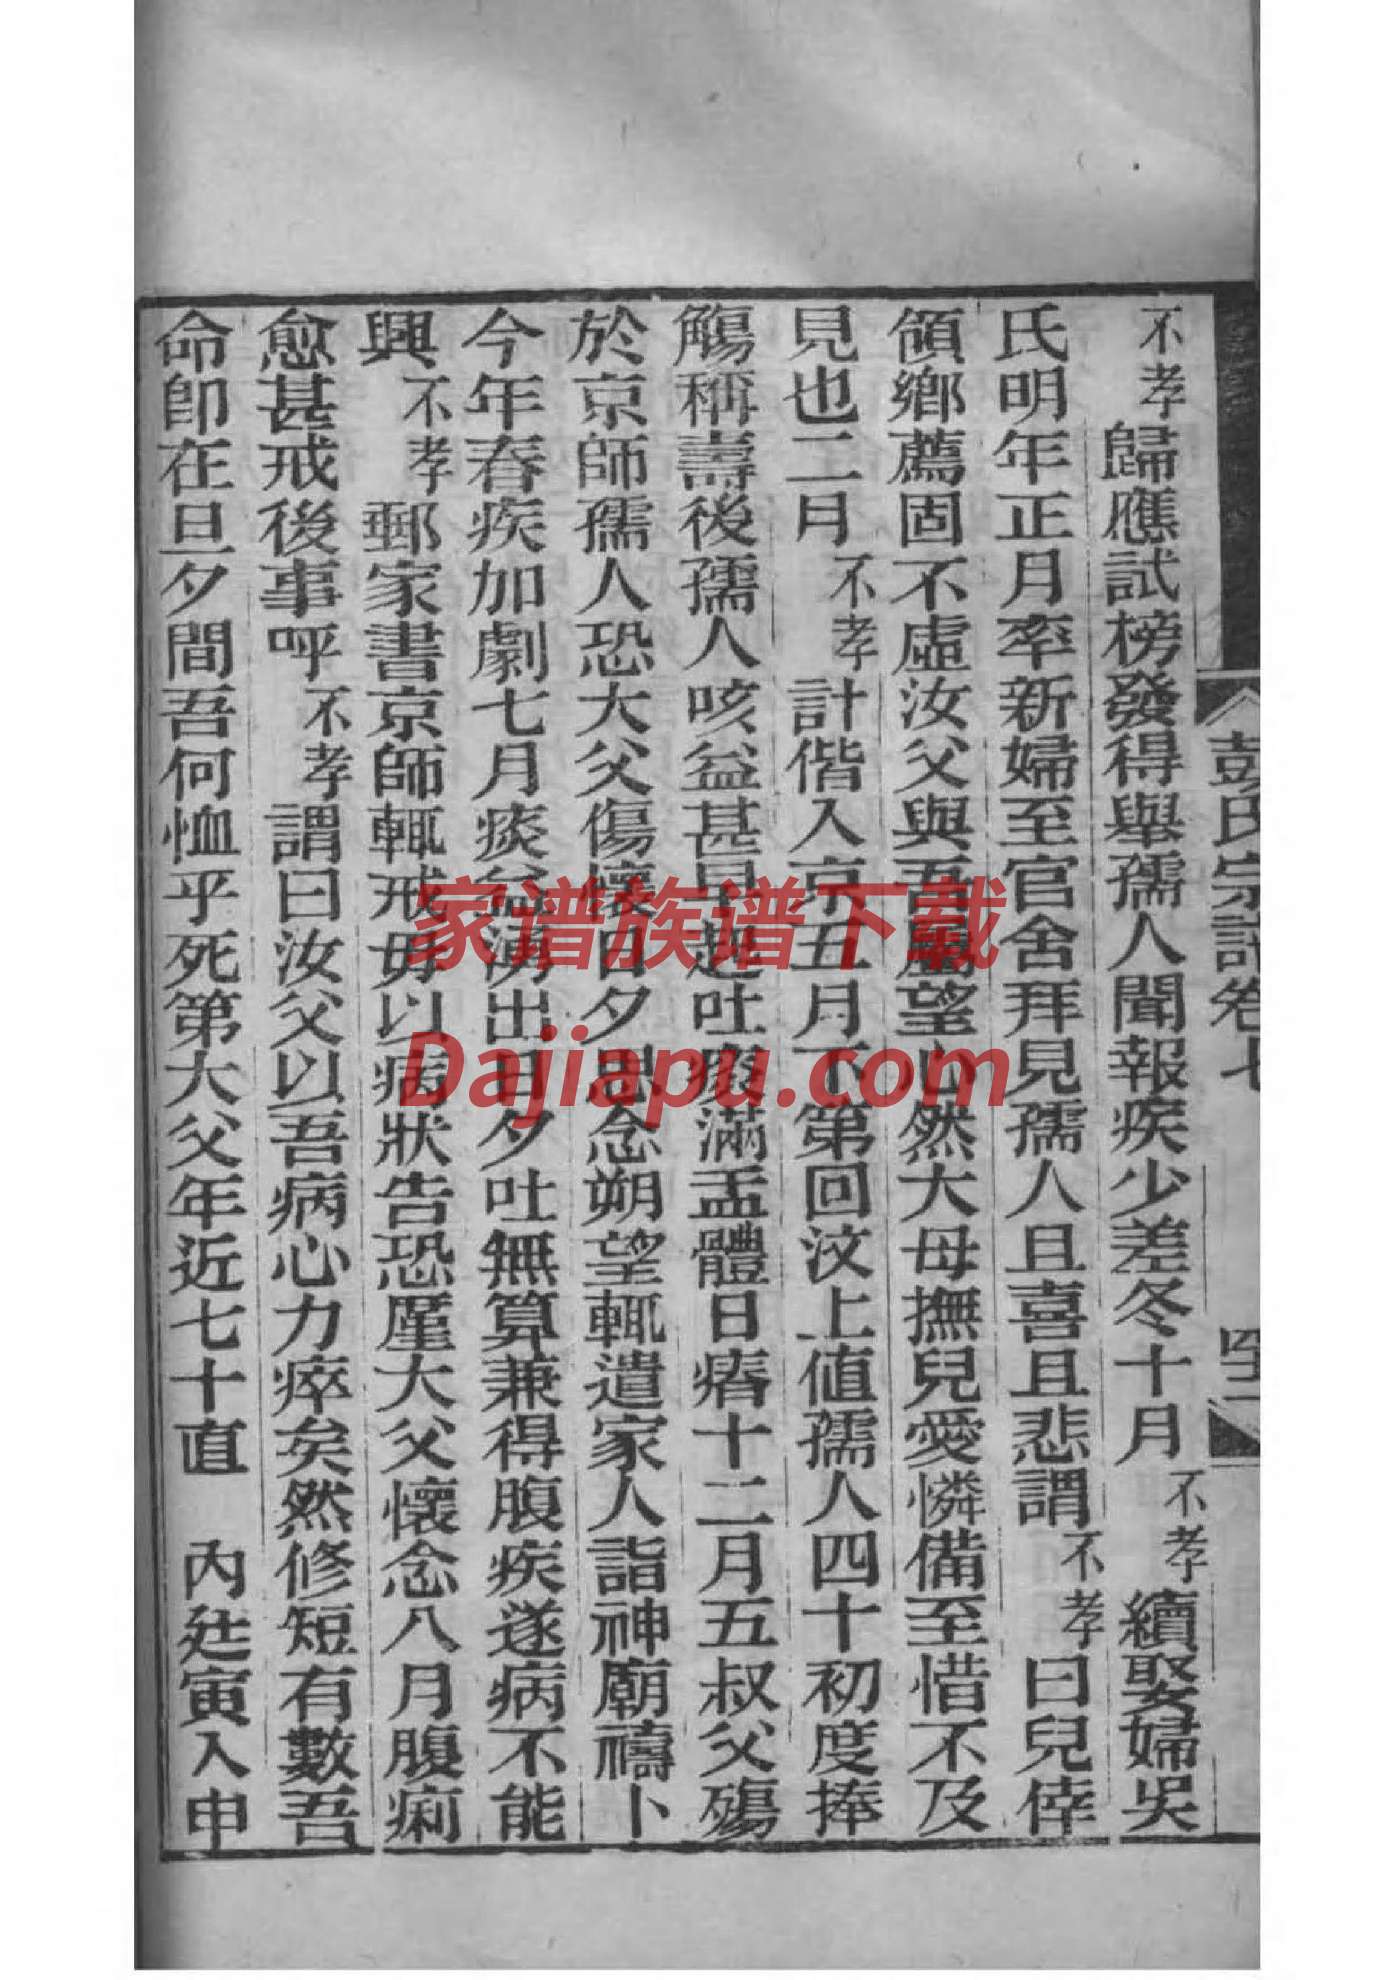 不孝歸應試榜發得舉孺人聞報疾少差冬十月不孝續娶婦吳
氏明年正月率新婦至官舍拜見孺人且喜且悲謂不孝曰兒倖
領鄉薦固不虛汝父與吾屬望心然大母撫兒愛憐備至惜不及
見也二月不孝計偕入京五月下第回汶上值孺人四十初度捧
觴稱壽後孺人咳益甚早起吐痰滿盂體日瘠十二月五叔父殤
於京師孺人恐大父傷懷日夕思念朔望輒遣家人詣神廟禱卜
今年春疾加劇七月痰益湧出日夕吐無算兼得腹疾遂病不能
興不孝郵家書京師輒戒毋以病狀告恐廑大父懷念八月腹痢
愈甚戒後事呼不孝謂曰汝父以吾病心力瘁矣然修短有數吾
命卽在旦夕間吾何恤乎死第大父年近七十直 內廷寅入申
彭氏宗譜卷七
家谱族谱下载
Dajiapu.com